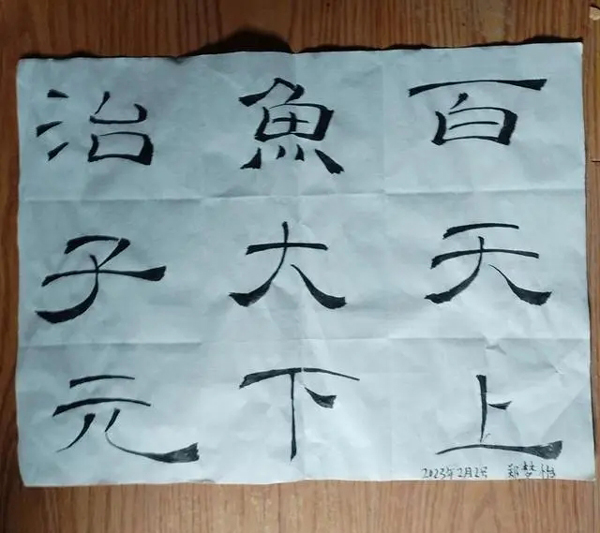 百天上
魚大下
治子元
2023年2月2号 郑梦怡